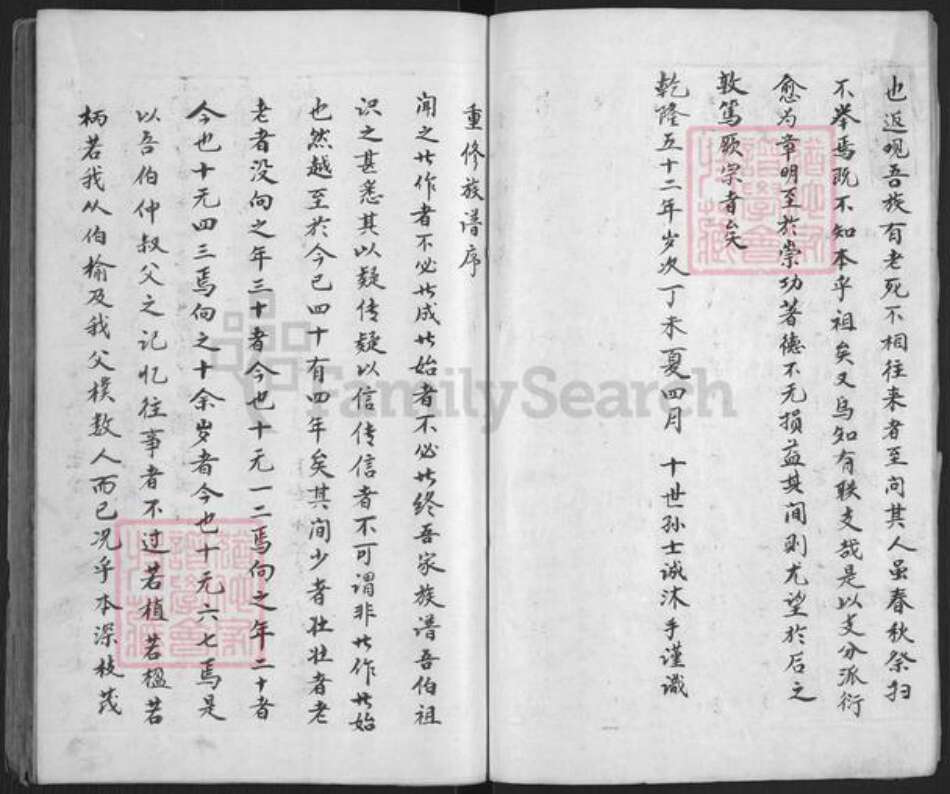 也返观吾族有老死不相往来者至问其人虽春秋祭扫
不举焉既不知本乎祖矣又乌知有联支哉是以支分派衍
愈为章明至於崇功著德不无损益其间则尤望於后之
敦篤厥宗者矣
乾隆五十二年岁次丁未夏四月 十世孙士诚沐手谨識
重修族谱序
闻之此作者不必此成此始者不必此终吾家族谱吾伯祖
识之甚悉其以疑传疑以信传信者不可谓非此作此始
也然越至於今已四十有四年矣其间少者壮壮者老
老者没向之年三十者今也十无一二焉向之年二十者
今也十无四三焉向之十余岁者今也十无六七焉是
以吾伯仲叔父之记忆往事者不过若植若楹若
柄若我从伯榆及我父樸数人而已况乎本深枝茂
FamilySearch